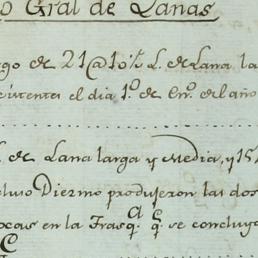 o Gral de Lanas
go de 21@10½ L. de Lana la
existente el dia 1º de Enº del año
. de Lana larga y Media, y 15
cluso Diezmo produjeron las dos
ocas en la Fras q. q. se concluyo